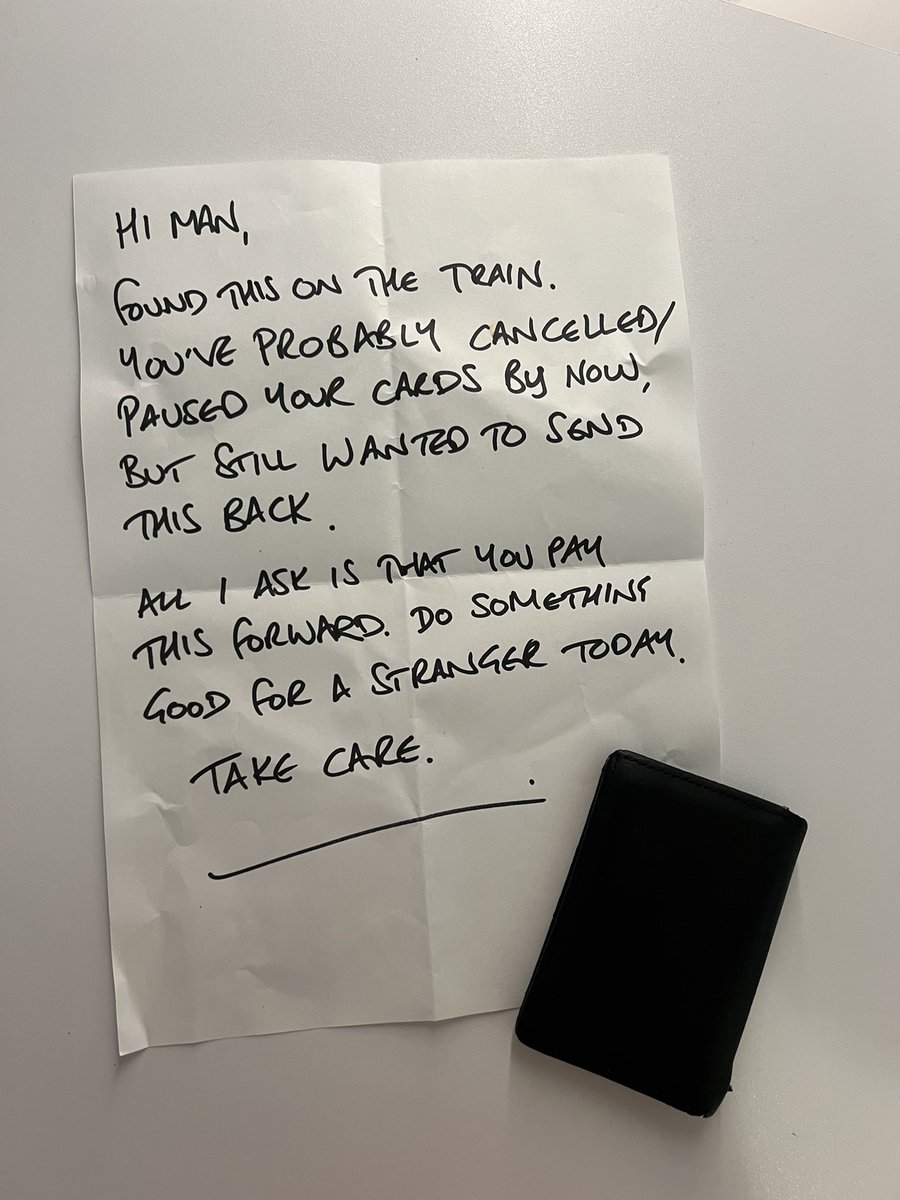 HI MAN,
FOUND THIS ON THE TRAIN.
YOU'VE PROBABLY CANCELLED/
PAUSED YOUR CARDS BY NOW,
BUT STILL WANTED TO SEND
THIS BACK.
ALL I ASK IS THAT YOU PAY
THIS FORWARD. DO SOMETHING
GOOD FOR A STRANGER TODAY.
TAKE CARE.